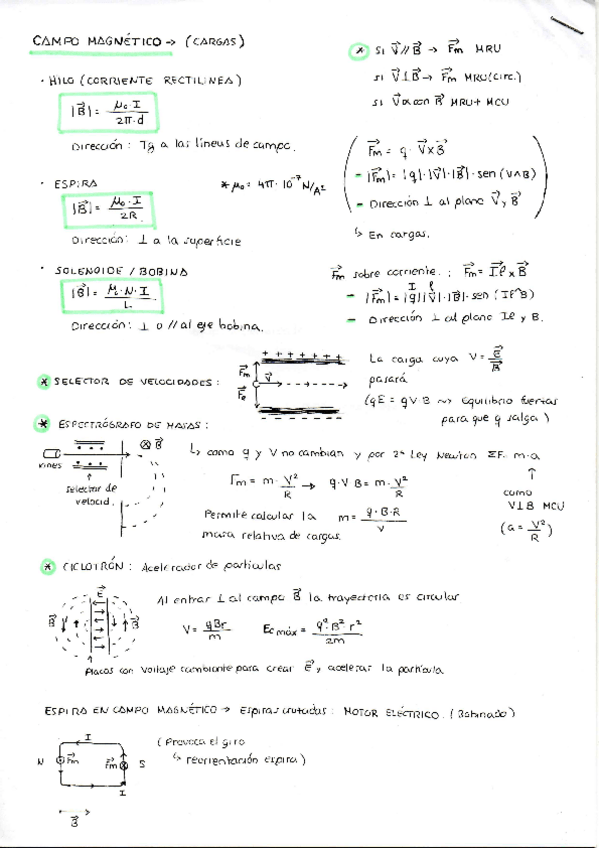 CAMPO MAGNÉTICO → (CARGAS)
· HILO (CORRIENTE RECTILINEA)
|B⃗| = μ₀·I / 2π·d
Dirección: Tg a las líneas de campo.
· ESPIRA
* μ₀ = 4π·10⁻⁷ N/A²
|B⃗| = μ₀·I / 2R
Dirección: ⊥ a la superficie
· SOLENOIDE / BOBINA
|B⃗| = μ·N·I / L
Dirección: ⊥ o // al eje bobina.
* Si V⃗ // B⃗ → F⃗m MRU
si V⃗ ⊥ B⃗ → F⃗m MRU (circ.)
si V⃗ α con B⃗ MRU + MCU
F⃗m = q · V⃗ x B⃗
- |F⃗m| = |q|·|V⃗|·|B⃗|·sen (V∧B)
- Dirección ⊥ al plano V⃗ y B⃗
↳ En cargas.
F⃗m sobre corriente.: F⃗m = I⃗ℓ x B⃗
I ℓ
- |F⃗m| = |q||V⃗|·|B⃗|·sen (Iℓ^B)
- Dirección ⊥ al plano Iℓ y B.
* SELECTOR DE VELOCIDADES:
+ + + + + + + + +
F⃗m
V⃗
F⃗e
La carga cuya V = E⃗/B⃗
pasará
(qE = qVB ⤳ Equilibrio fuerzas
para que q salga)
* ESPECTRÓGRAFO DE MASAS:
⊗ B⃗
+ + + +
Selector de
velocid.
↳ como q y V no cambian y por 2ª Ley Newton ΣF = m·a
Fm = m · V²/R → q·V B = m · V²/R
Permite calcular la m = q·B·R / V
masa relativa de cargas.
↑
como
V⊥B MCU
(a = V²/R)
* CICLOTRÓN: Acelerador de partículas
E⃗
B⃗
B⃗
Al entrar ⊥ al campo B⃗ la trayectoria es circular
V = qBr / m
Ec máx = q²·B²·r² / 2m
Placas con voltaje cambiante para crear E⃗ y acelerar la partícula
ESPIRA EN CAMPO MAGNÉTICO → Espiras cruzadas: MOTOR ELÉCTRICO. (Bobinado)
I
N
F⃗m
F⃗m
S
I
B⃗
(Provoca el giro
↳ reorientación espira)